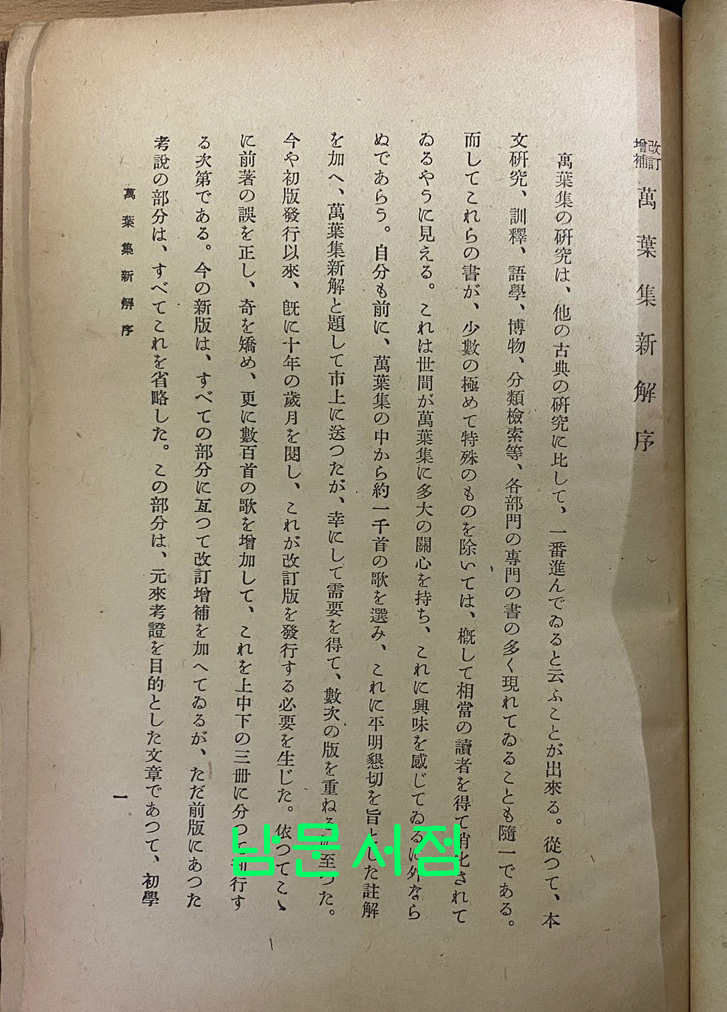 改訂
增補 萬葉集新解序
萬葉集の硏究は、他の古典の硏究に比して、一番進んでゐると云ふことが出來る。從つて、本
文硏究、訓釋、語學、博物、分類檢索等、各部門の專門の書の多く現れてゐることも隨一である。
而してこれらの書が、少數の極めて特殊のものを除いては、槪して相當の讀者を得て消化されて
ゐるやうに見える。これは世間が萬葉集に多大の關心を持ち、これに興味を感じてゐるに外なら
ぬであらう。自分も前に、萬葉集の中から約一千首の歌を選み、これに平明懇切を旨とした註解
を加へ、萬葉集新解と題して市上に送つたが、幸にして需要を得て、數次の版を重ねるに至つた。
今や初版發行以來、旣に十年の歲月を閱し、これが改訂版を發行する必要を生じた。依つてこゝ
に前著の誤を正し、奇を矯め、更に數百首の歌を增加して、これを上中下の三册に分つて刊行す
る次第である。今の新版は、すべての部分に亙つて改訂增補を加へてゐるが、ただ前版にあつた
考說の部分は、すべてこれを省略した。この部分は、元來考證を目的とした文章であつて、初學
萬葉集新解序
一
남문서점